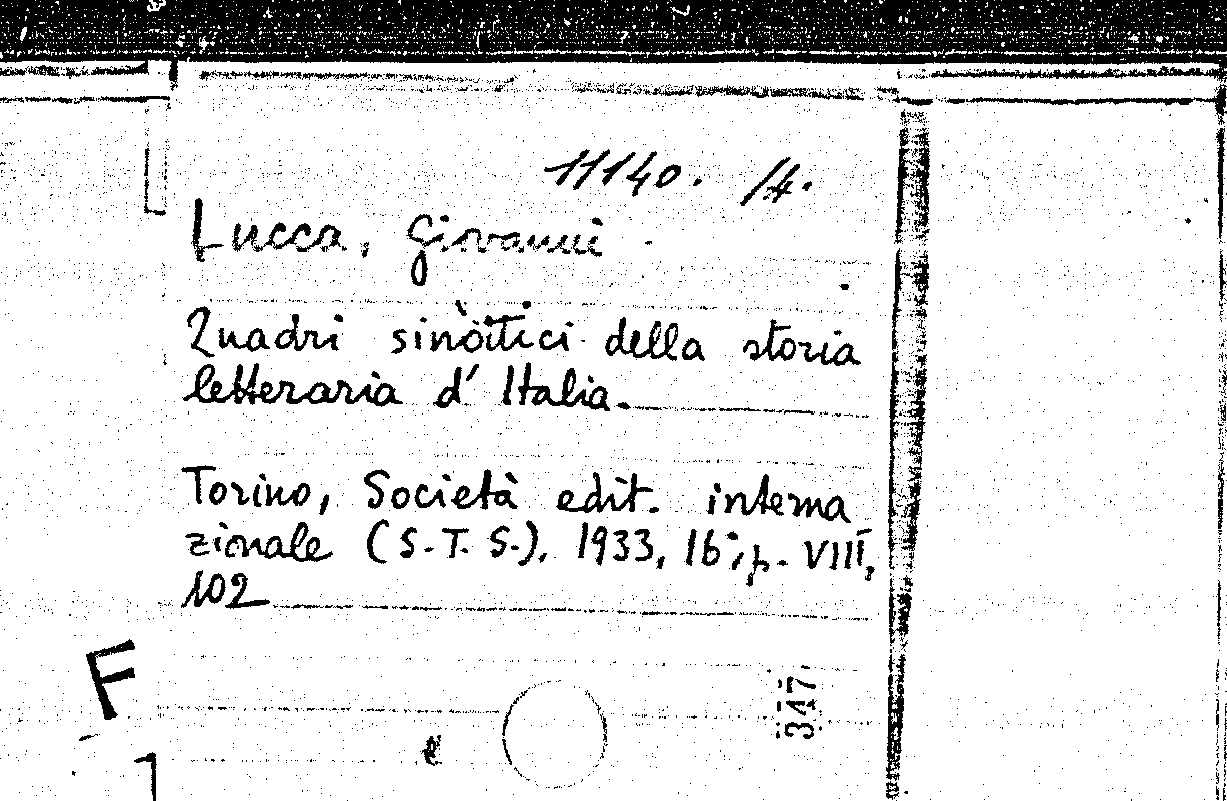 11140. /4.
Lucca, Giovanni
Quadri sinottici della storia
letteraria d' Italia.
Torino, Società edit. interna
zionale (S.T.S.), 1933, 16°, p. VIII,
102
F
347
1